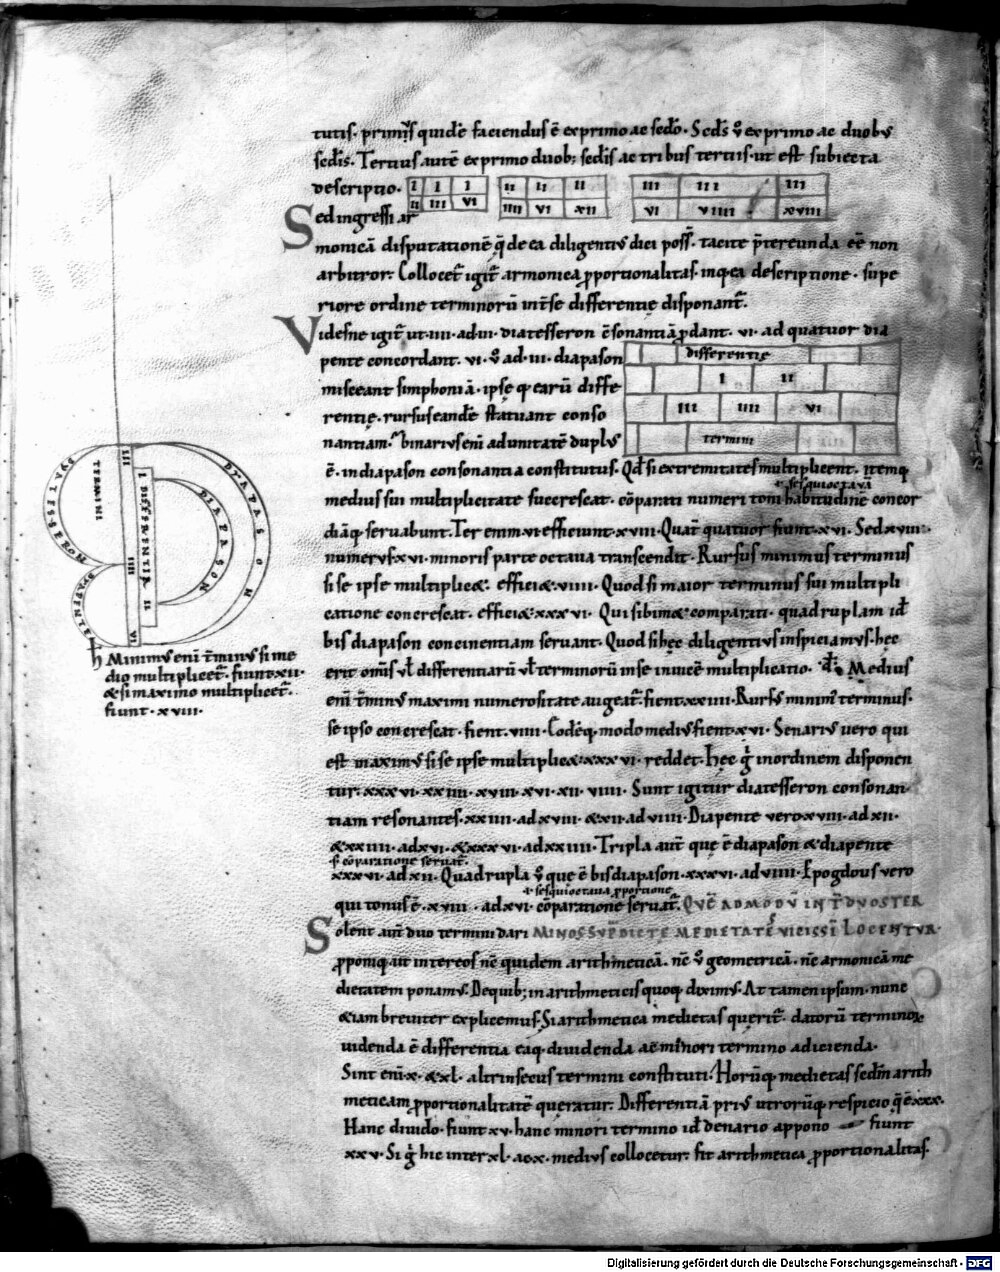 tutis. primꝰ quidē faciendus ē ex primo ac secd̄o. Secd̄s ꝟ ex primo ac duobꝰ
secd̄is. Tertius autē ex primo duob; secd̄is ac tribus tertiis. ut est subiecta
descriptio. I I I II II II III III III
II III VI IIII VI XII VI VIIII XVIII
Sed ingressi ar
monicā disputationē q̄ de ea diligentiꝰ dici poss̄. tacite p̄tereunda eē non
arbitror. Collocet̄ igit̄ armonica ꝓportionalitas. inq; ea descriptione. supe
riore ordine terminorū int̄ se differentię disponant̄.
Videsne igit̄ ut .IIII. ad .III. diatesseron c̄sonantiā ꝓdant. VI. ad quatuor dia
pente concordant. VI. ꝟ ad .III. diapason
differentię
misceant simphoniā. ipsę q; earū diffe
I II
rentię. rursus eandē statuant conso
III IIII VI
nantiam. binariꝰ enī ad unitatē duplꝰ
termini
ē. in diapason consonantia constitutus. Qd̄ si extremitates multiplicent. itemq;
ł sesquioctava
medius sui multiplicitate succrescat. cōparati numeri toni habitudinē concor
diāq; seruabunt. Ter enim .vi. efficiunt .xviii. Quat̄ quatuor fiunt .xvi. Sed xviii.
numerꝰ xvi. minoris parte octaua transcendit. Rursus minimus terminus
si se ipse multiplicet. efficiet .viiii. Quod si maior terminus sui multipli
catione concrescat. efficiet xxxvi. Qui sibimet comparati. quadruplam id̄
bis diapason concinentiam seruant. Quod si hęc diligentius inspiciamꝰ. hęc
erit om̄is ul̄ differentiarū ul̄ terminorū in se inuicē multiplicatio. Medius
enī t̄minꝰ maximi numerositate augeat̄. fient xxiiii. Rursꝰ minimꝰ terminus.
se ipso concrescat. fient. viiii. Codēq; modo mediꝰ fient .xvi. Senariꝰ uero qui
est maximꝰ si se ipse multiplicet. xxxvi. reddet. Hęc g̊ in ordinem disponen
tur. xxxvi. xxiiii. xviii. xvi. xii. viiii. Sunt igitur diatesseron consonan
tiam resonantes. xxiiii. ad xviii. & xii. ad viiii. Diapente uero xviii. ad xii.
& xxiiii. ad xvi. & xxxvi. ad xxiiii. Tripla aut̄ que ē diapason & diapente
cōparatione seruat̄.
xxxvi. ad xii. Quadrupla ꝟ que ē bis diapason. xxxvi. ad viiii. Epogdous uero
ł sesquioctaua proportione
qui tonus ē. xviii. ad xvi. cōparatione seruat̄. QVĒADMODV̄ INT̄ DVOS TER
MINOS SVP̄DICTE MEDIETATĒ VICISSĪ LOCENTVR.
Solent aut̄ duo termini dari
ꝓponiq; ut inter eos nc̄ quidem arithmeticā. nc̄ ꝟ geometricā. nc̄ armonicā me
dietatem ponamꝰ. De quib; in arithmeticis quoq; diximꝰ. At tamen ipsum. nunc
etiam breuiter explicemus. Si arithmetica medietas querit̄. datorū terminoꝝ
uidenda ē differentia eaq; diuidenda ac minori termino adicienda.
Sint enī .x. & xl. altrinsecus termini constituti. Horūq; medietas secd̄m arith
meticam ꝓportionalitatē queratur. Differentiā priꝰ utrorūq; respicio q̄ ē xxx.
Hanc diuido. fiunt xv. hanc minori termino id̄ denario appono fiunt
xxv. Si g̊ hic inter xl. ac x. medius collocetur. fit arithmetica ꝓportionalitas.
DIAPASON
DIAPASON
DIATESSERON
DIAPENTE
TERMINI
DIFFERENTIA
III
IIII
VI
I
II
h Minimꝰ enī t̄minꝰ si me
dio multiplicet̄. fiunt xii.
& si maximo multiplicet̄.
fiunt .xviii.
Digitalisierung gefördert durch die Deutsche Forschungsgemeinschaft - DFG